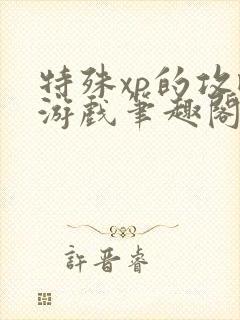 特殊xp的攻
游戏笔趣阁
許晋睿